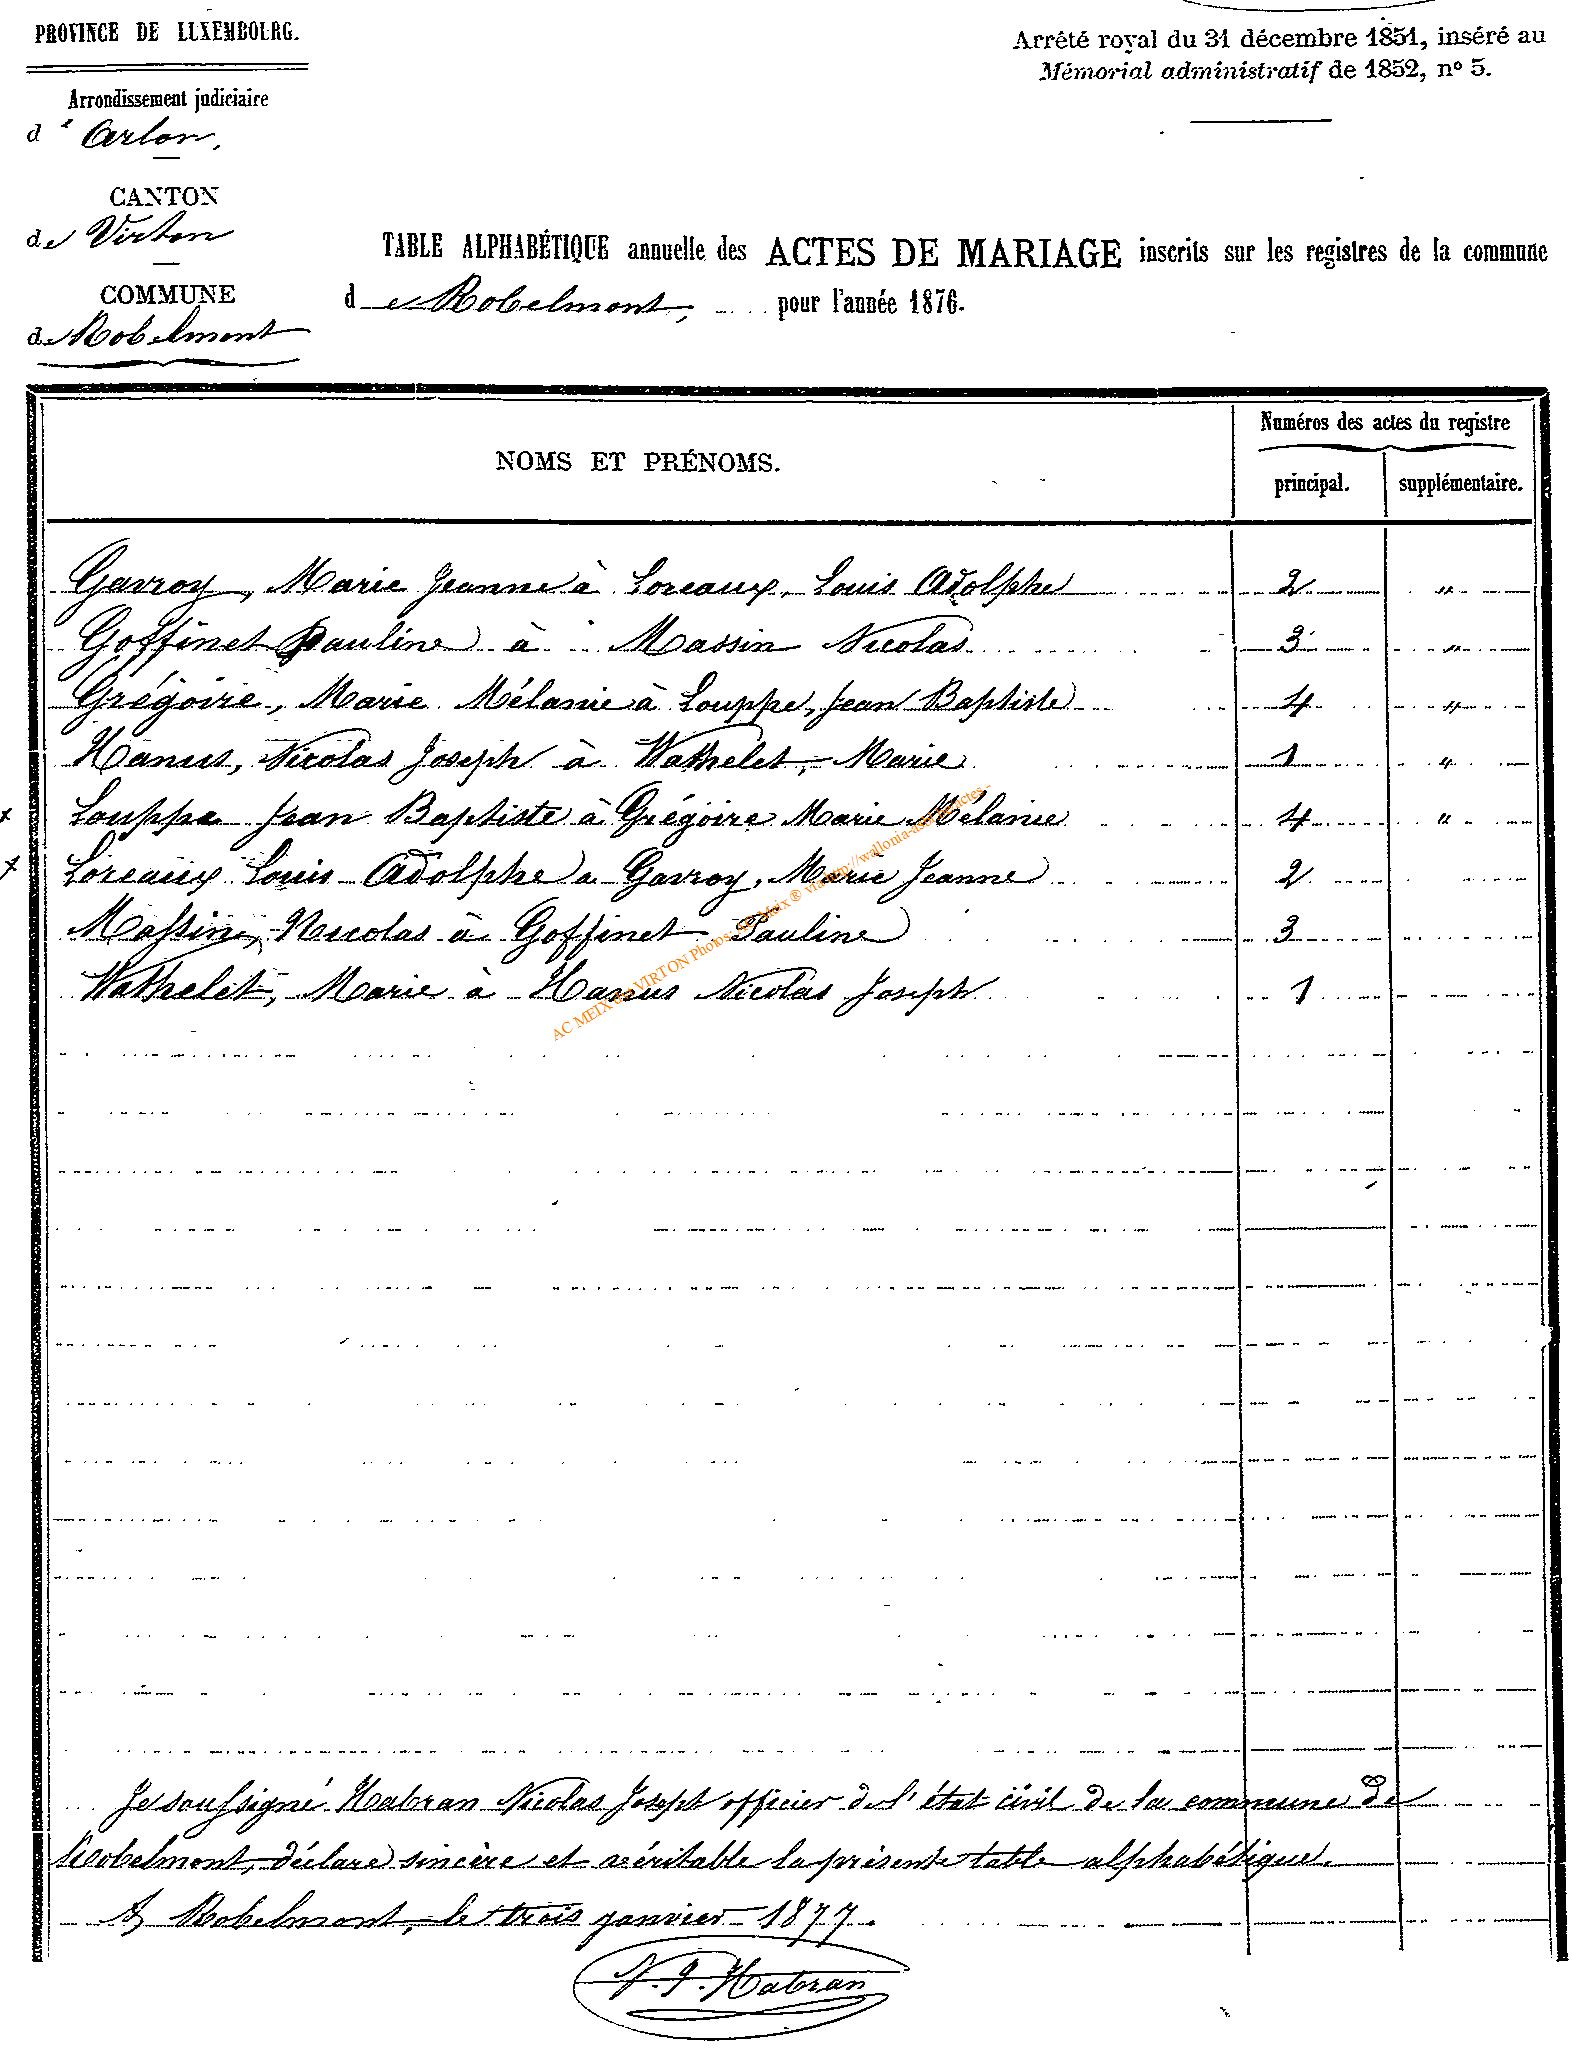 PROVINCE DE LUXEMBOURG.
Arrêté royal du 31 décembre 1851, inséré au
Mémorial administratif de 1852, nº 5.
Arrondissement judiciaire
d'Arlon,
CANTON
de Virton
COMMUNE
de Robelmont
TABLE ALPHABÉTIQUE annuelle des ACTES DE MARIAGE inscrits sur les registres de la commune
de Robelmont, pour l'année 1876.
NOMS ET PRÉNOMS.
Numéros des actes du registre
principal. supplémentaire.
Gavroy, Marie Jeanne à Loreaux, Louis Adolphe 2 "
Goffinet Pauline à Massin Nicolas 3 "
Grégoire, Marie Mélanie à Louppe, Jean Baptiste 4 "
Hanus, Nicolas Joseph à Wathelet, Marie 1 "
Louppe Jean Baptiste à Grégoire Marie Mélanie 4 "
Loreaux Louis Adolphe a Gavroy, Marie Jeanne 2
Massin, Nicolas à Goffinet Pauline 3
Wathelet, Marie à Hanus Nicolas Joseph 1
AC MEIX dt VIRTON Photos: via http://wallonia-asbl
Je soussigné Habran Nicolas Joseph officier de l'état civil de la commune de
Robelmont, déclare sincère et véritable la présente table alphabétique.
A Robelmont, le trois janvier 1877.
N. J. Habran